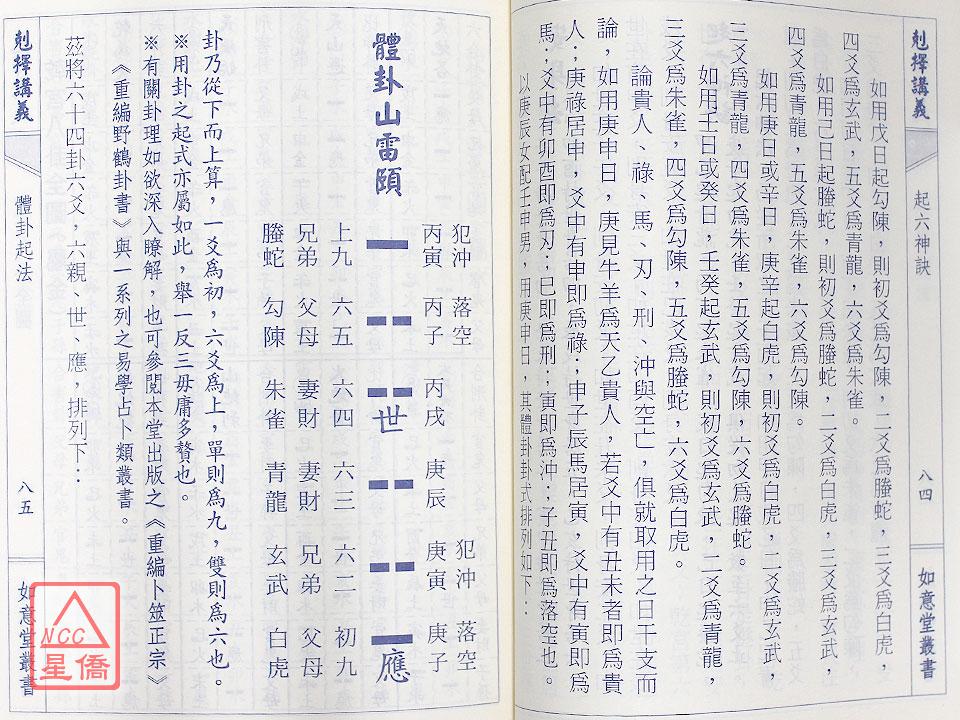 剋擇講義
起六神訣
八四
如意堂叢書
如用戊日起勾陳，則初爻爲勾陳，二爻爲螣蛇，三爻爲白虎，
四爻爲玄武，五爻爲青龍，六爻爲朱雀。
如用己日起螣蛇，則初爻爲螣蛇，二爻爲白虎，三爻爲玄武，
四爻爲青龍，五爻爲朱雀，六爻爲勾陳。
如用庚日或辛日，庚辛起白虎，則初爻爲白虎，二爻爲玄武，
三爻爲青龍，四爻爲朱雀，五爻爲勾陳，六爻爲螣蛇。
如用壬日或癸日，壬癸起玄武，則初爻爲玄武，二爻爲青龍，
三爻爲朱雀，四爻爲勾陳，五爻爲螣蛇，六爻爲白虎。
論貴人、祿、馬、刃、刑、沖與空亡，俱就取用之日干支而
論，如用庚申日，庚見牛羊爲天乙貴人，若爻中有丑未者即爲貴
人；庚祿居申，爻中有申即爲祿；申子辰馬居寅，爻中有寅即爲
馬；爻中有卯酉即爲刃；巳即爲刑；寅即爲沖；子丑即爲落空也。
以庚辰女配壬申男，用庚申日，其體卦卦式排列如下：
體卦山雷頤
犯沖 落空 犯沖 落空
丙寅 丙子 丙戌 庚辰 庚寅 庚子
世 應
上九 六五 六四 六三 六二 初九
兄弟 父母 妻財 妻財 兄弟 父母
螣蛇 勾陳 朱雀 青龍 玄武 白虎
卦乃從下而上算，一爻爲初，六爻爲上，單則爲九，雙則爲六也。
※用卦之起式亦屬如此，舉一反三毋庸多贅也。
※有關卦理如欲深入瞭解，也可參閱本堂出版之《重編卜筮正宗》
《重編野鶴卦書》與一系列之易學占卜類叢書。
茲將六十四卦六爻，六親、世、應，排列下：
剋擇講義
體卦起法
八五
如意堂叢書
NCC
星僑